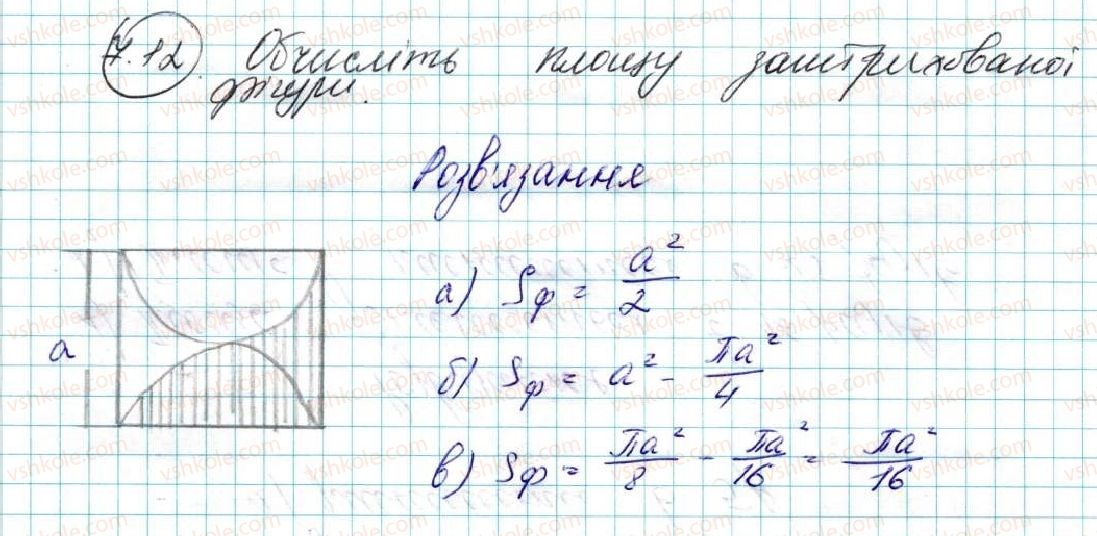 7.12. Обчисліть площу заштрихованої
фігури.
Розв'язання
a
а) Sф = a²/2
б) Sф = a² - πa²/4
в) Sф = πa²/8 - πa²/16 = πa²/16
vshkole.com